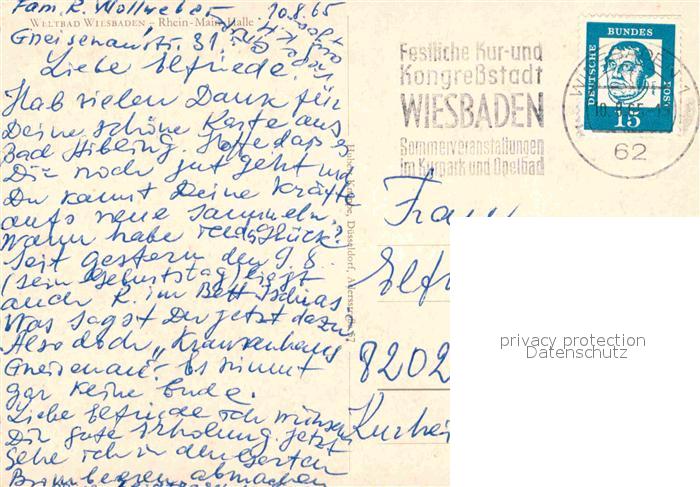 Fam. R. Wollweber 10.8.65
WELTBAD WIESBADEN – Rhein-Main-Halle
Gneisenaustr. 31.
Liebe Elfriede!
Hab vielen Dank für
Deine schöne Karte aus
Bad Aibling. Hoffe daß es
Dir noch gut geht und
Du kannst Deine Kräfte
aufs neue sammeln.
Wann habe ich Glück?
Seit gestern den 9.8.
(sein Geburtstag) liegt
auch R. im Bett Ischias
Was sagst Du jetzt dazu
Also doch „Krankenhaus
Gneisenau". Es nimmt
gar keine Ende.
Liebe Elfriede ich wünsche
Dir gute Erholung. Jetzt
gehe ich in den Garten
Brombeeren abmachen
Düsseldorf,
Festliche Kur-und
Kongreßstadt
WIESBADEN
Sommerveranstaltungen
im Kurpark und Opelbad
DEUTSCHE BUNDES POST
15
62
Frau
Elfr
8202
Kurhei
privacy protection
Datenschutz